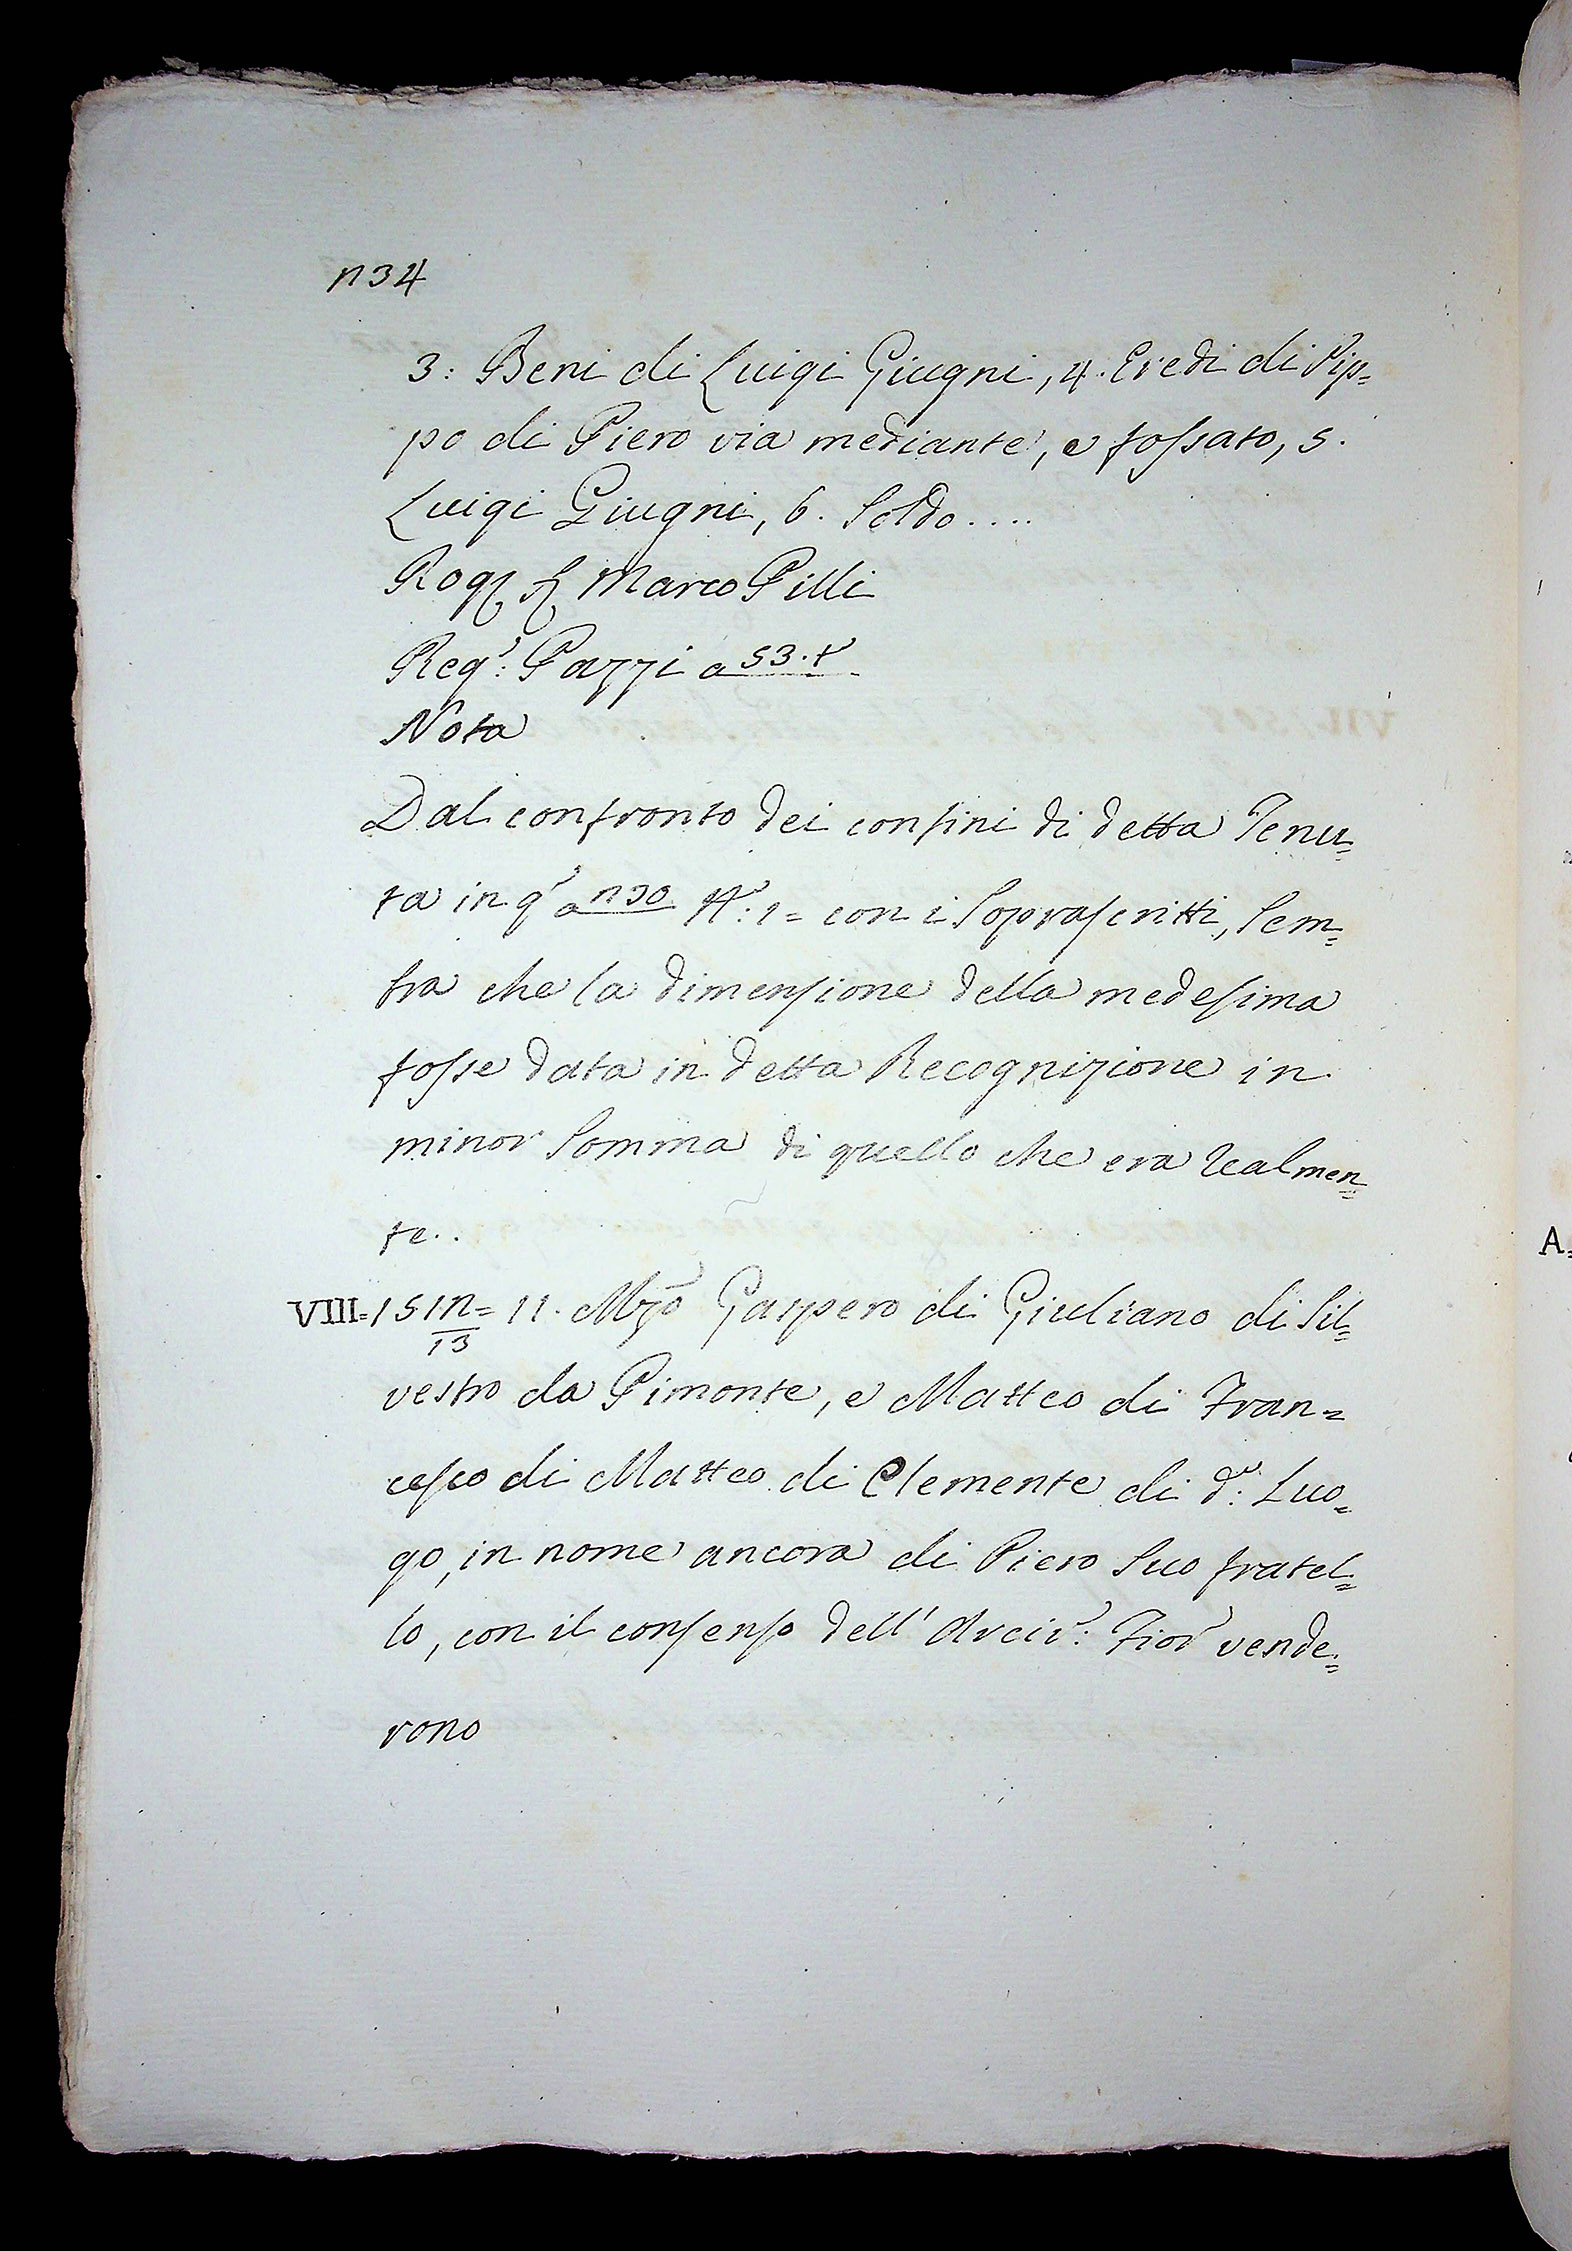 1134
3: Beni di Luigi Giugni, 4. Eredi di Pip=
po di Piero via mediante, e fossato, 5.
Luigi Giugni, 6. Soldo....
Rog Marco Pilli
Reg: Pazzi a 53.t
Nota
Dal confronto dei confini di detta Tenu=
ta in q a 1130 N: 1= con i Soprascritti, Sem=
bra che la dimensione della medesima
fosse data in detta Recognizione in
minor Somma di quello che era realmen=
te..
VIII=1512= 11. Mzo Gaspero di Giuliano di Sil=
13
vestro da Pimonte, e Matteo di Fran=
cesco di Matteo di Clemente di d: Luo=
go, in nome ancora di Piero Suo fratel=
lo, con il consenso dell' Arciv: Fior vende=
rono
A=